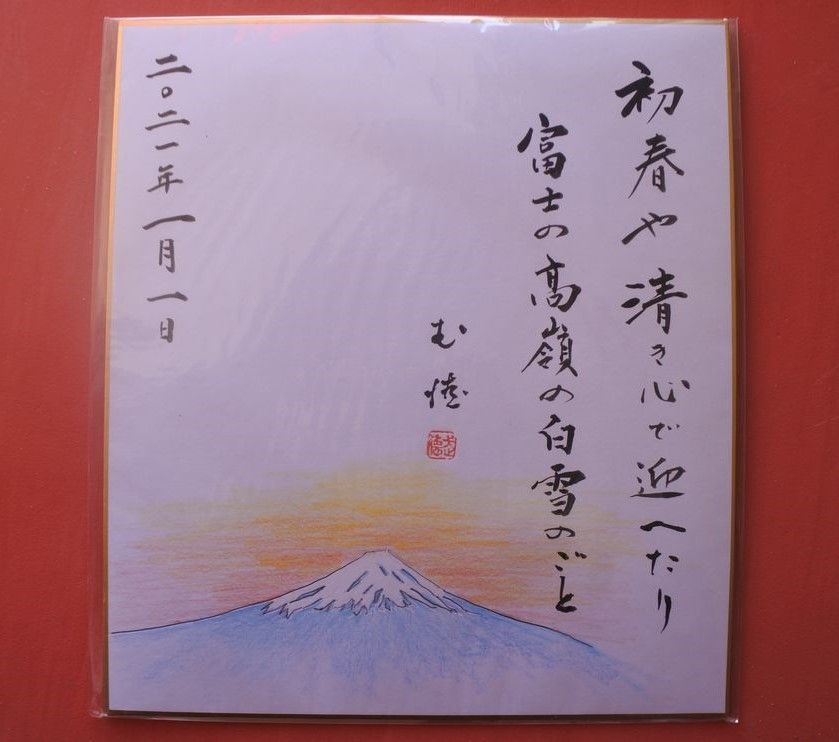 初春や清き心で迎へたり
富士の高嶺の白雪のごと
二〇二一年一月一日